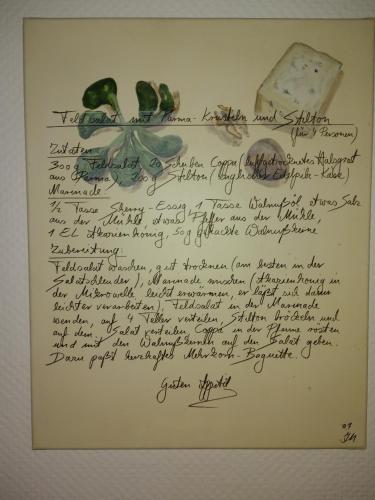 Feldsalat mit Parma-Krusteln und Stilton
(für 4 Personen)
Zutaten:
300g Feldsalat, 20 Scheiben Coppa (luftgetrockneter Halsgrat
aus Parma), 200g Stilton (englischer Edelpilz-Käse)
Marinade:
1/2 Tasse Sherry-Essig, 1 Tasse Walnußöl, etwas Salz
aus der Mühle, etwas Pfeffer aus der Mühle,
1 EL Akazienhonig, 50g gehackte Walnußkerne
Zubereitung:
Feldsalat waschen, gut trocknen (am besten in der
Salatschleuder), Marinade mischen (Akazienhonig in
der Mikrowelle leicht erwärmen, er läßt sich dann
leichter verarbeiten), Feldsalat in der Marinade
wenden, auf 4 Teller verteilen, Stilton bröckeln und
auf dem Salat verteilen, Coppa in der Pfanne rösten
und mit den Walnußkernen auf den Salat geben.
Dazu paßt herzhaftes Mehrkorn-Baguette.
Guten Appetit
01